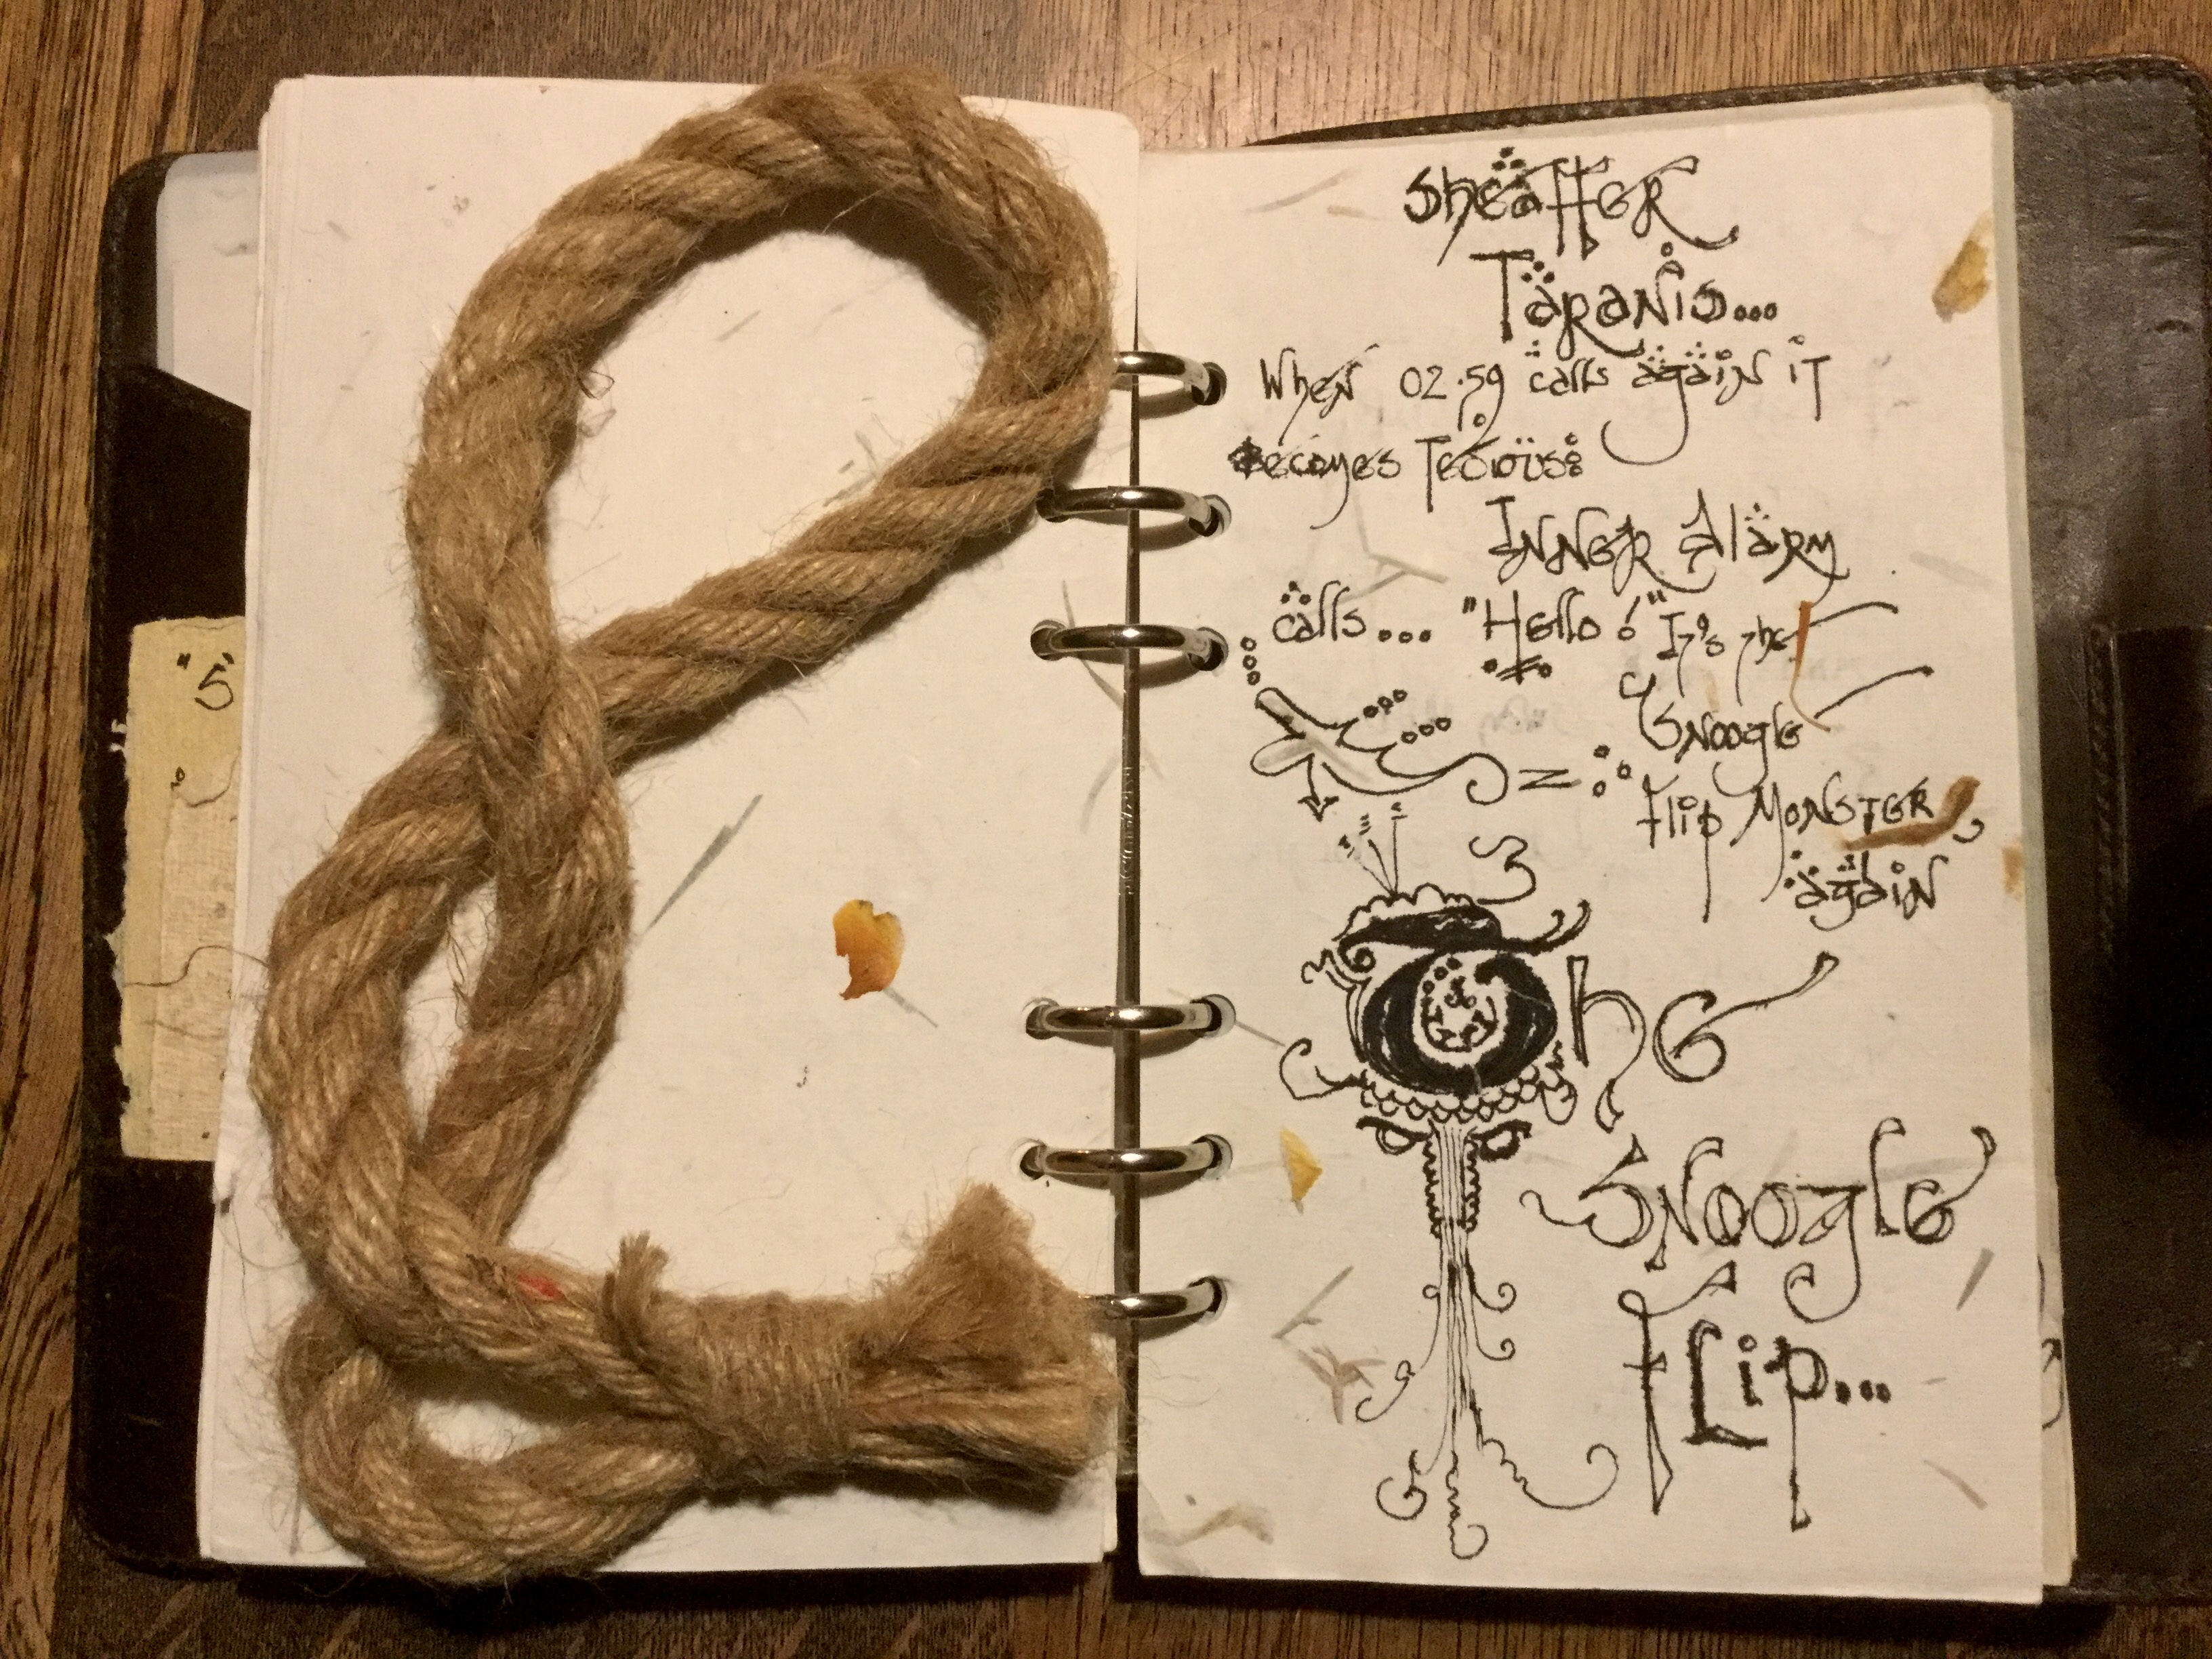 "5"
Sheätter
Täranis...
When 02.59 calls again it
Becomes Tedious:
Inner Alärm
calls... "Hello!" It's the
Snoogle
flip Monster
again
The
Snoogle
flip...